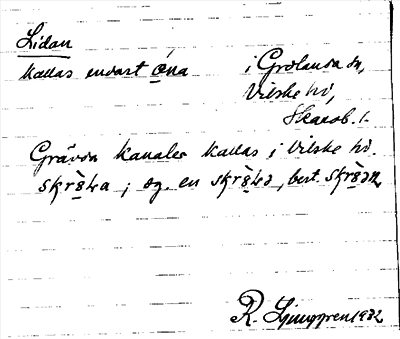 Lidan
kallas endast ɷ́na i Grolanda sn,
Vilske hd,
Skarab. l.
Grävda kanaler kallas i Vilske hd.
skrɷ̀ka ; sg. en skrɷ̀kɷ, best. skrɷ̀ɷn
R. Ljunggren 1932